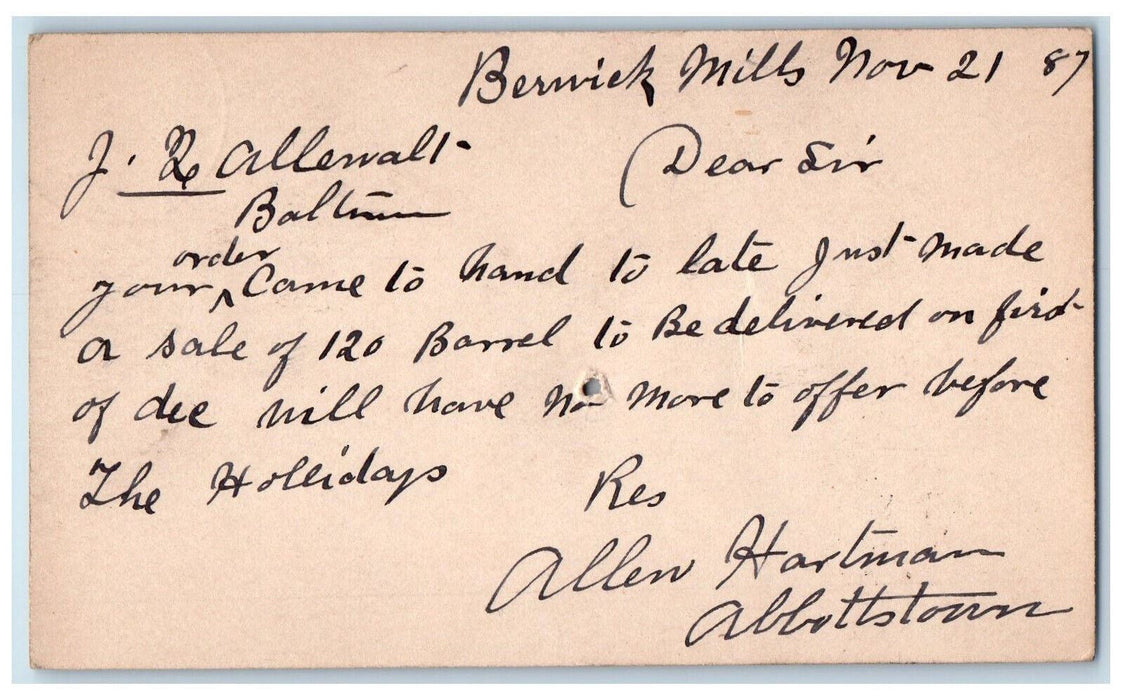 Berwick Mills Nov 21 87
J. Q Allewalt
Dear Sir
Baltim
order
your ^ Came to hand to late Just Made
a sale of 120 Barrel to Be delivered on first
of dec will have No More to offer before
The Hollidays
Res
Allen Hartman
Abbottstown